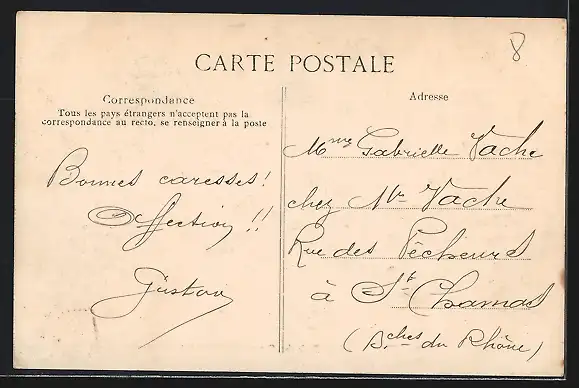 8
CARTE POSTALE
Correspondance
Tous les pays étrangers n'acceptent pas la
correspondance au recto, se renseigner à la poste
Adresse
Bonnes caresses!
Affection!!
Gustave
Mme Gabrielle Vache
chez Mr Vache
Rue des Pêcheurs
à St Chamas
(B.ches du Rhône)